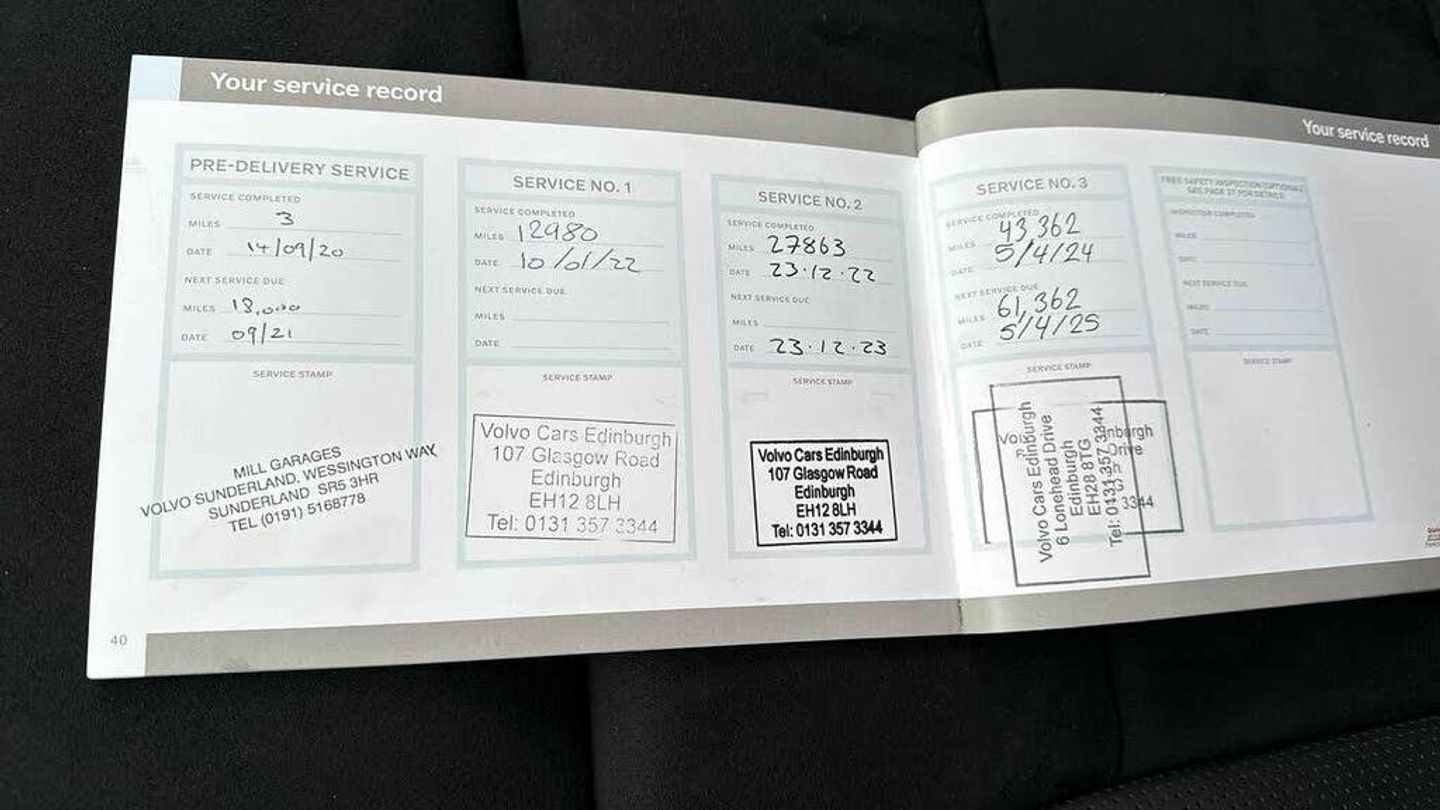 Your service record
PRE-DELIVERY SERVICE
SERVICE COMPLETED
MILES 3
DATE 14/09/20
NEXT SERVICE DUE
MILES 18,000
DATE 09/21
SERVICE STAMP
MILL GARAGES
VOLVO SUNDERLAND. WESSINGTON WAY
SUNDERLAND SR5 3HR
TEL (0191) 5168778
SERVICE NO. 1
SERVICE COMPLETED
MILES 12980
DATE 10/01/22
NEXT SERVICE DUE
MILES
DATE
SERVICE STAMP
Volvo Cars Edinburgh
107 Glasgow Road
Edinburgh
EH12 8LH
Tel: 0131 357 3344
SERVICE NO. 2
SERVICE COMPLETED
MILES 27863
DATE 23.12.22
NEXT SERVICE DUE
MILES
DATE 23.12.23
SERVICE STAMP
Volvo Cars Edinburgh
107 Glasgow Road
Edinburgh
EH12 8LH
Tel: 0131 357 3344
40
Your service record
SERVICE NO. 3
SERVICE COMPLETED
MILES 43,362
DATE 5/4/24
NEXT SERVICE DUE
MILES 61,362
DATE 5/4/25
SERVICE STAMP
Volvo Cars Edinburgh
6 Lonehead Drive
Edinburgh
EH28 8TG
Tel: 0131 357 3344
Drive
3344
FREE SAFETY INSPECTION (OPTIONAL)
SEE PAGE 37 FOR DETAILS
INSPECTION COMPLETED
MILES
DATE
NEXT SERVICE DUE
MILES
DATE
SERVICE STAMP